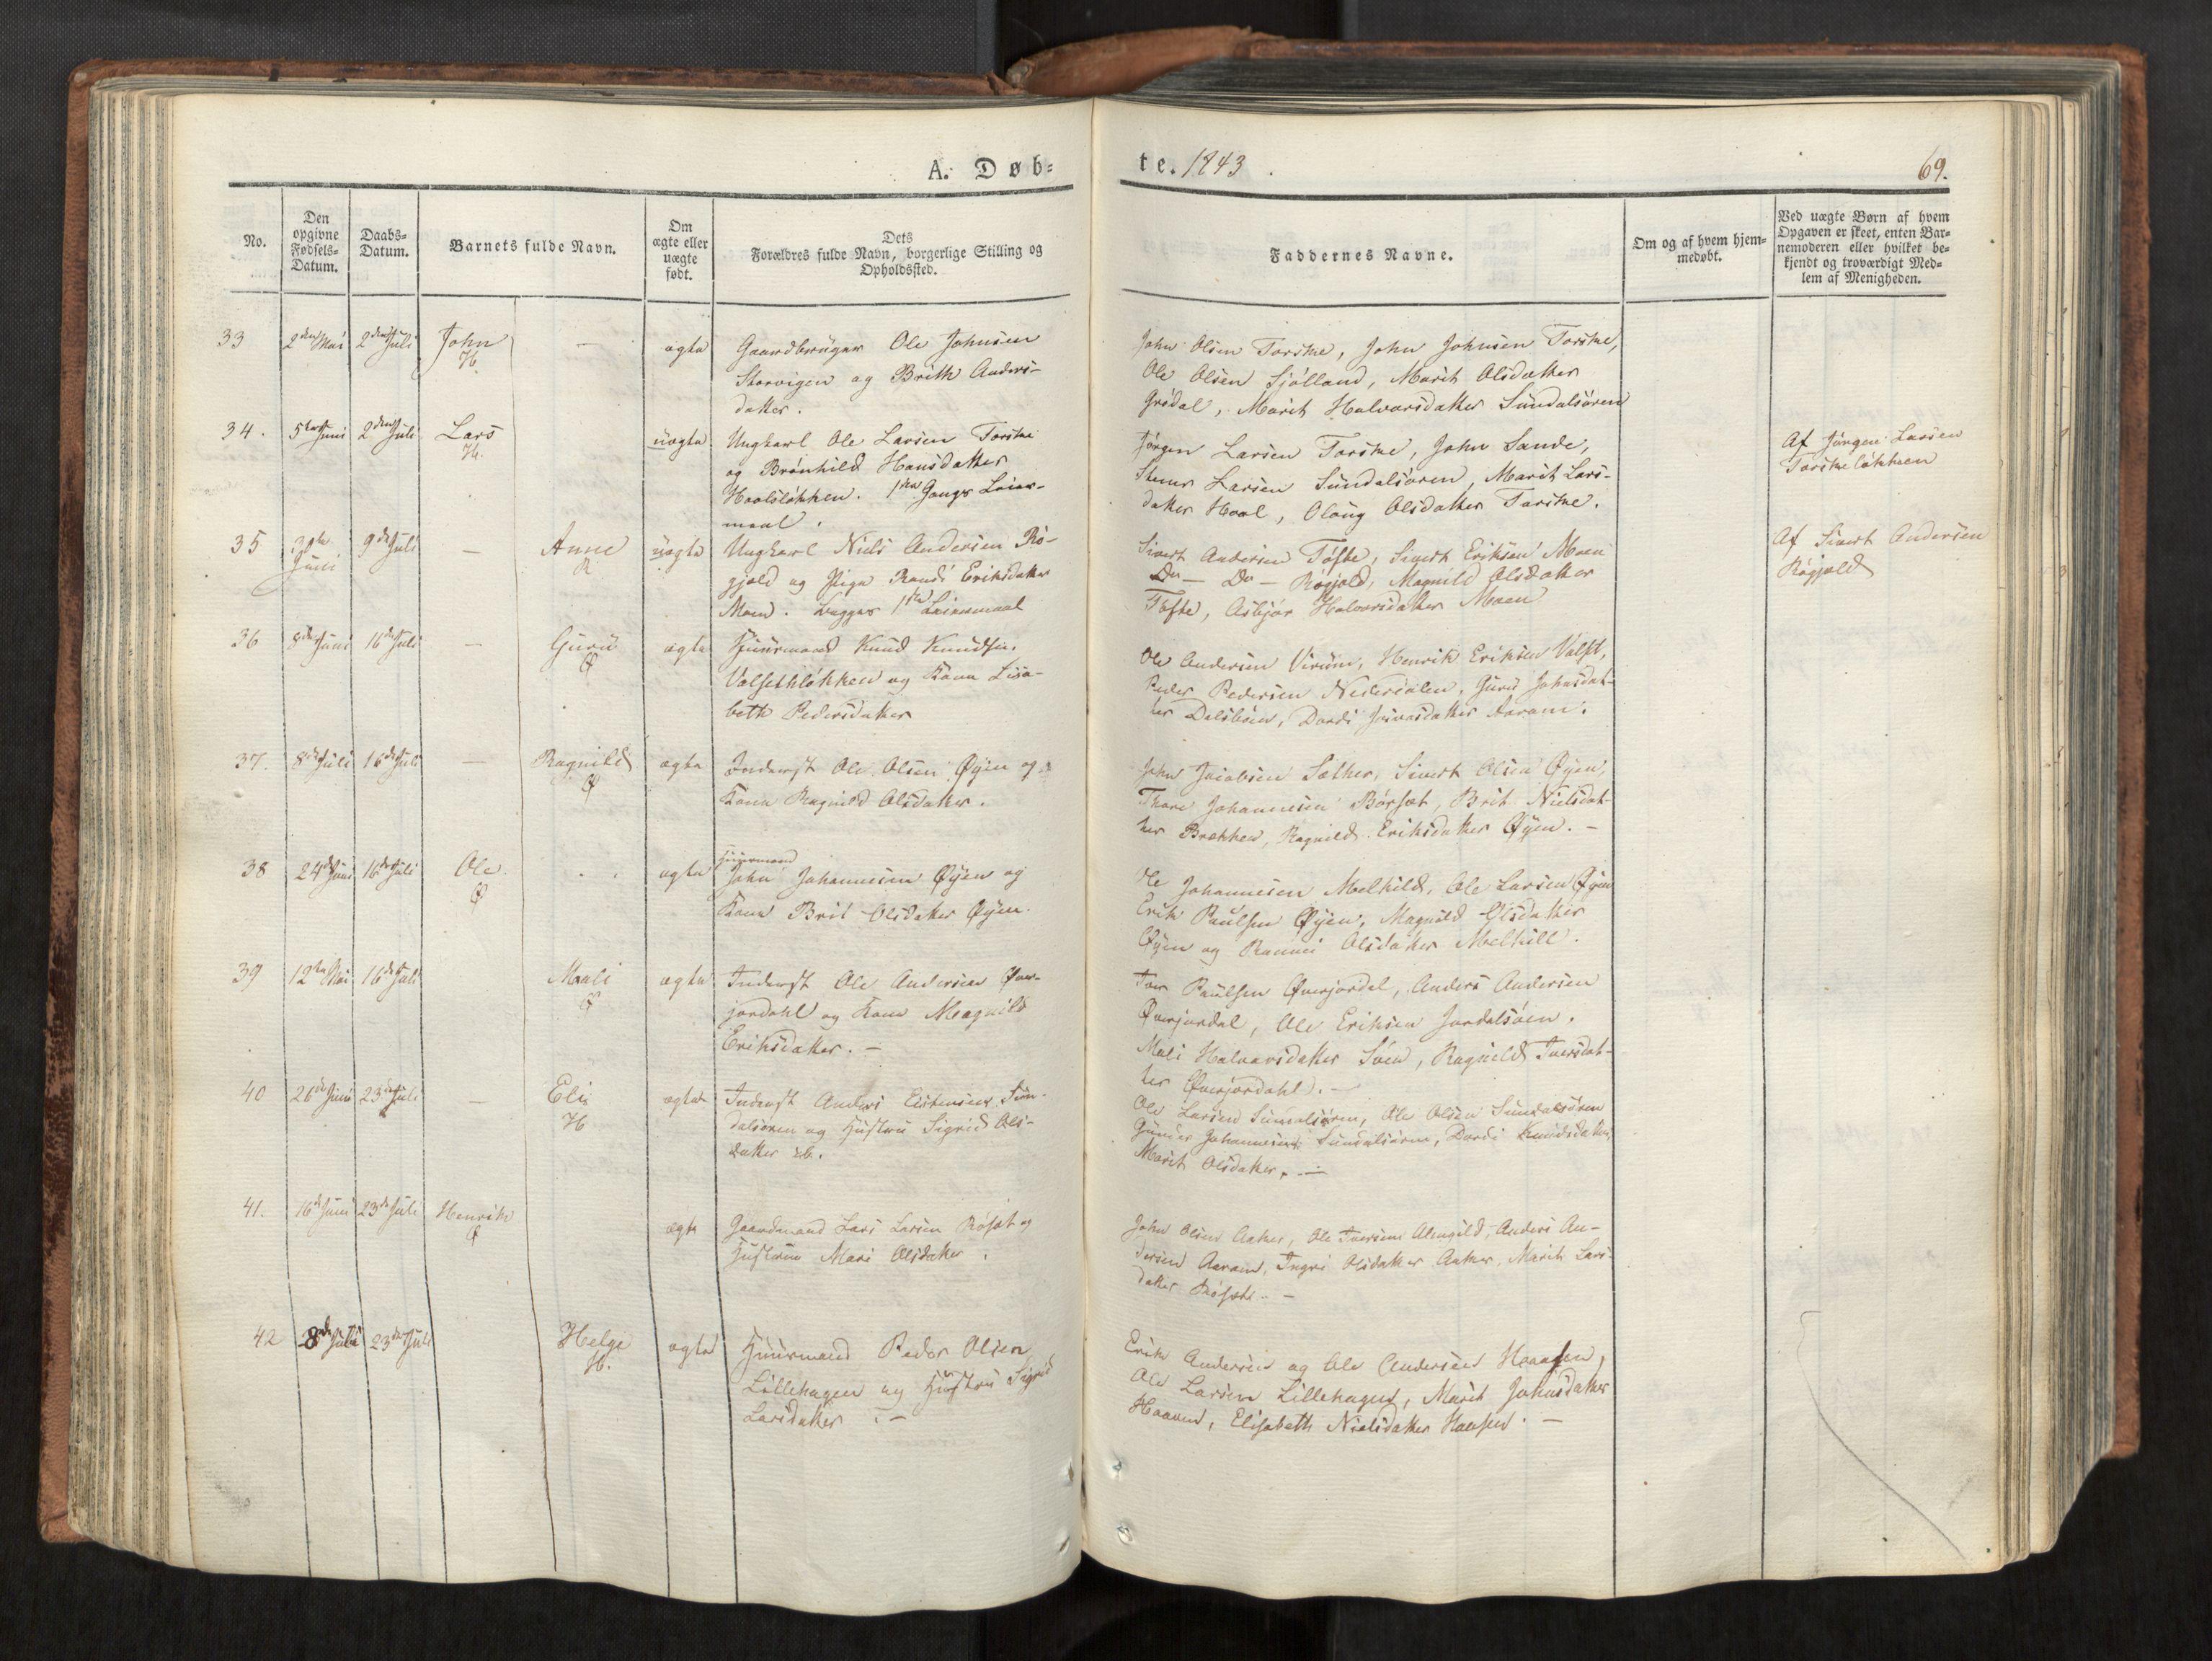 A. Døb-
te. 1843. 69.
No.
Den opgivne Fødsels-Datum.
Daabs-Datum.
Barnets fulde Navn.
Om ægte eller uægte født.
Dets Forældres fulde Navn, borgerlige Stilling og Opholdssted.
Faddernes Navne.
Om og af hvem hjemmedøbt.
Ved uægte Børn af hvem
Opgaven er skeet, enten Bar-
nemoderen eller hvilket be-
kjendt og troværdigt Med-
lem af Menigheden.
33 2den Mai 2den Juli John — ægte Gaardbruger Ole Johnsen
H.
Storvigen og Brith Anders-
datter.
John Olsen Torske, John Johnsen Torske,
Ole Olsen Sjølland, Marit Olsdatter
Grødal, Marit Halvorsdatter Sundalsøren
34. 5te Juni 2den Juli Lars uægte Ungkarl Ole Larsen Torske
H.
og Brønhild Hansdatter
Hoolsløkken. 1ste Gangs Leier-
maal.
Jørgen Larsen Torske, John Sande,
Larsen Sundalsøren, Marit Lars-
datter Hool, Olaug Olsdatter Torske.
Af Jørgen Larsen
Torskeløkken
35 Juni 9de Juli — Anne uægte Ungkarl Niels Andersen Rø-
gjæld og Pige Randi Eriksdatter
Moen. Begges 1ste Leiermaal
Sivert Andersen Tøfte, Sivert Eriksen Moen
Do — Do — Røgjæld, Magnild Olsdatter
Tøfte, Asbjør Halvorsdatter Moen
Af Sivert Andersen
Røgjæld
36 8de Juni 16de Juli — Guru ægte Huusmand Knud Knudsen
Ø
Valsethløkken og Kone Lisa-
beth Pedersdatter
Ole Andersen Virum, Henrik Eriksen Valset,
Peder Pedersen Nedredalen, Guru Johnsdat-
ter Dalsbøen, Dordi Iversdatter Aaram.
37. 8de Juli 16de Juli — Ragnild ægte Inderst Ole Olsen Øyen og
Ø
Kone Ragnild Olsdatter.
John Jacobsen Sæther, Sivert Olsen Øyen,
Thore Johannesen Børset, Brit Nielsdat-
ter Brækken, Ragnild Eriksdatter Øyen. —
38 24de Juni 16de Juli Ole ægte
Huusmand
John Johannesen Øyen og
Ø
Kone Brit Olsdatter Øyen.
Ole Johannesen Melkild, Ole Larsen Øyen
Erik Paulsen Øyen, Magnild Olsdatter
Øyen og Olsdatter Melkill.
39 12te Mai 16de Juli Mali ægte Inderst Ole Andersen Øver-
Ø
jordahl og Kone Magnild
Eriksdatter. —
Tore Paulsen Øverjordal, Anders Andersen
Øverjordal, Ole Eriksen Jordalsøien.
Mali Halvorsdatter Søen, Ragnild Toresdat-
ter Øverjordahl. —
40 26de Juni 23de Juli — Eli ægte Inderst Anders Eistensen Sun-
H
dalsøren og Hustru Sigrid Ols-
datter
Ole Larsen Sundalsøren, Ole Olsen Sundalsøren
Gunder Johannesen Sundalsøren, Dordi Knudsdatter,
Marit Olsdatter. —
41. 16de Juni 23de Juli Henrik ægte Gaardmand Lars Larsen Røset og
Ø
Hustrue Mari Olsdatter.
John Olsen Aaker, Ole Toresen Almskild, Anders An-
dersen Aaram, Ingri Olsdatter Aaker, Marit Lars-
datter Røset. —
42 8de Juli 23de Juli Helge ægte Huusmand Peder Olsen
H.
Lillehagen og Hustru Sigrid
Larsdatter. —
Erik Andersen og Ole Andersen Haaven,
Ole Larsen Lillehagen, Marit Johnsdatter
Haaven, Elisabeth Nielsdatter Hansen. —